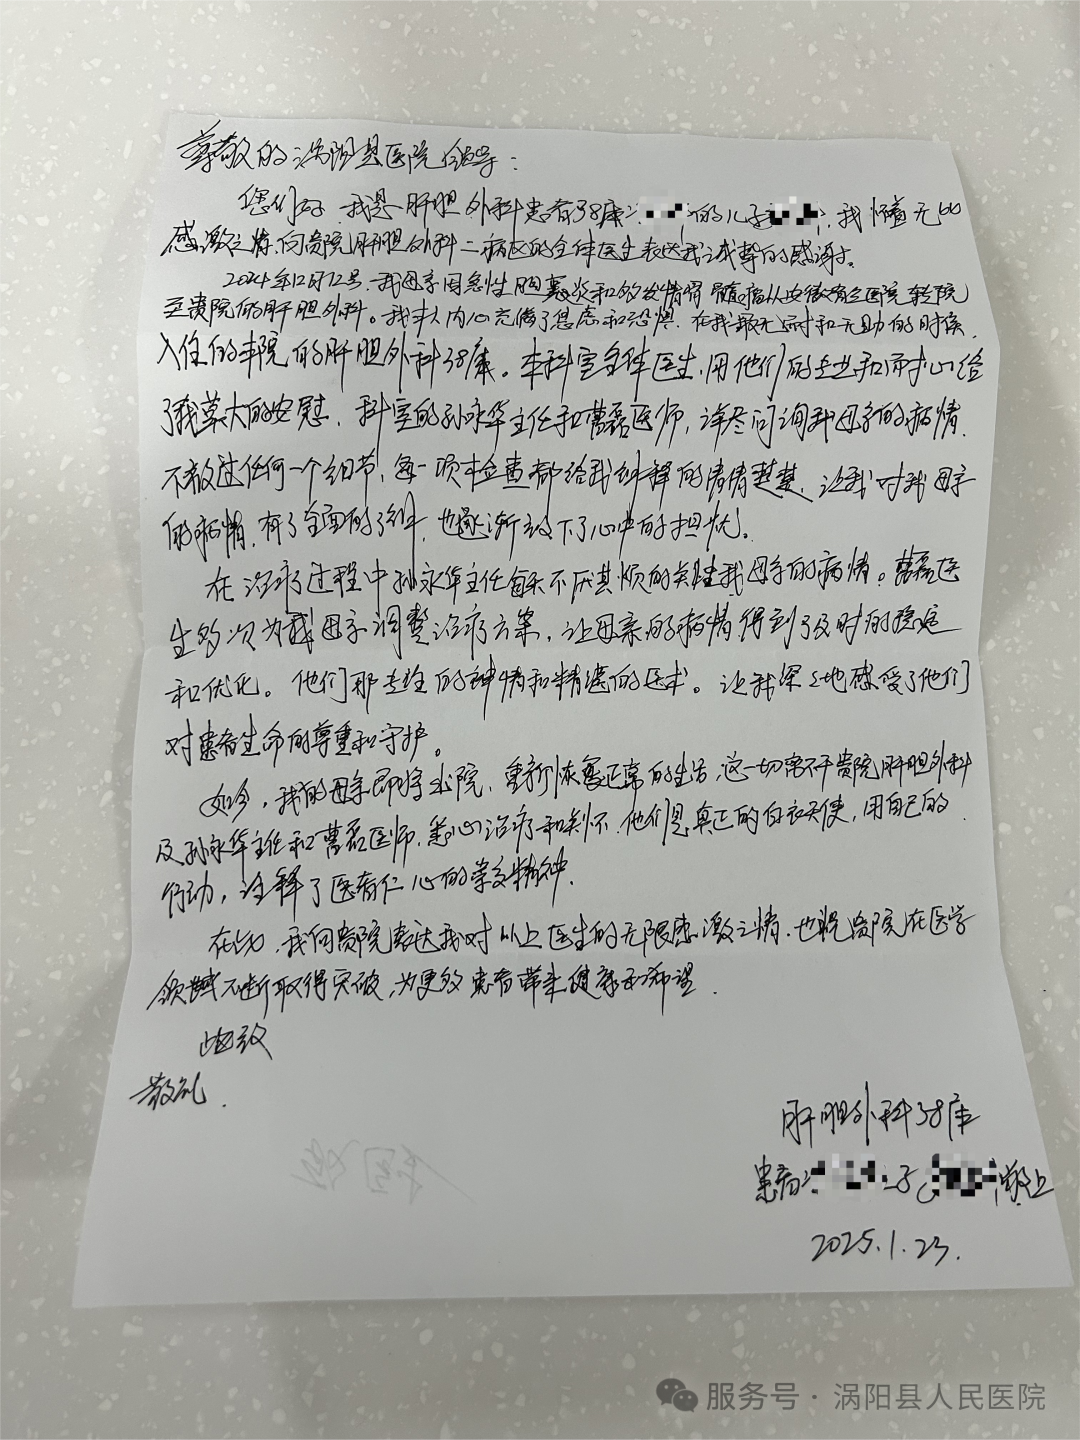 尊敬的涡阳县医院领导：
您们好 我是肝胆外科患者38床 的儿子 ，我怀着无比
感激之情，向贵院肝胆外科二病区的全体医生表达我诚挚的感谢。
2024年12月12号，我母亲因急性胆囊炎和多发 从安徽省立医院转院
至贵院的肝胆外科。我本人内心充满了焦虑和恐惧，在我最无 和无助的时候，
入住的本院的肝胆外科38床。本科室全体医生，用他们的专业和耐心给
了我莫大的安慰，科室的孙永华主任和曹磊医师，详尽问询我母亲的病情，
不放过任何一个细节，每一项检查都给我解释的清清楚楚，让我对我母亲
的病情，有了全面的了解，也逐渐放下了心中的担忧。
在治疗过程中孙永华主任每天不厌其烦的关注我母亲的病情。曹磊医
生多次为我母亲调整治疗方案，让母亲的病情得到了及时的稳定
和优化。他们那专注的神情和精湛的医术。让我深深地感受了他们
对患者生命的尊重和守护。
如今，我的母亲即将出院，重新恢复正常的生活，这一切离不开贵院肝胆外科
及孙永华主任和曹磊医师，悉心治疗和关怀，他们是真正的白衣天使，用自己的
行动，诠释了医者仁心的崇高精神，
在此，我向贵院表达我对以上医生的无限感激之情，也祝贵院在医学
领域不断取得突破，为更多患者带来健康和希望．
此致
敬礼．
肝胆外科38床
患者： 之子 敬上
2025.1.23.
服务号·涡阳县人民医院